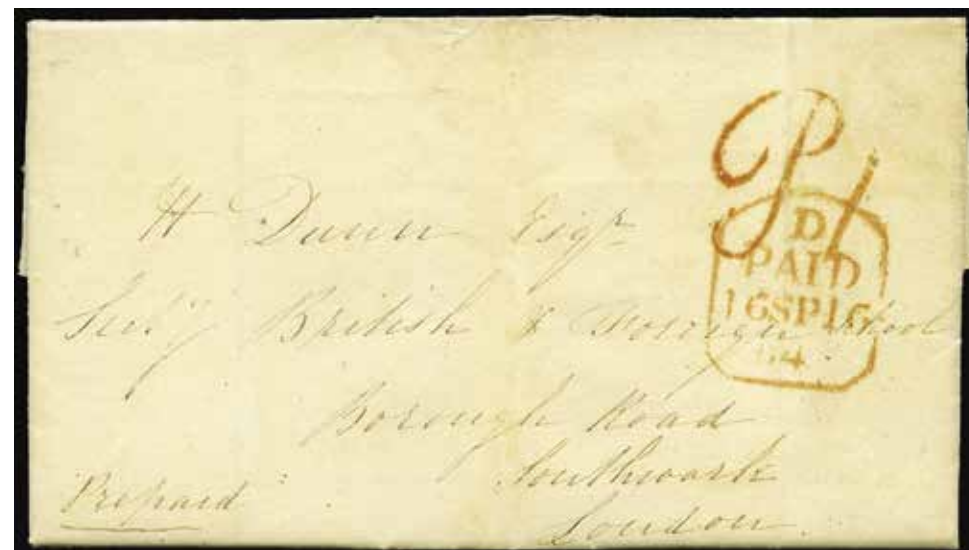 P1
D
PAID
16SP16
H Dunn Esqr
British & Foreign School
Borough Road
Southwark
London
Prepaid